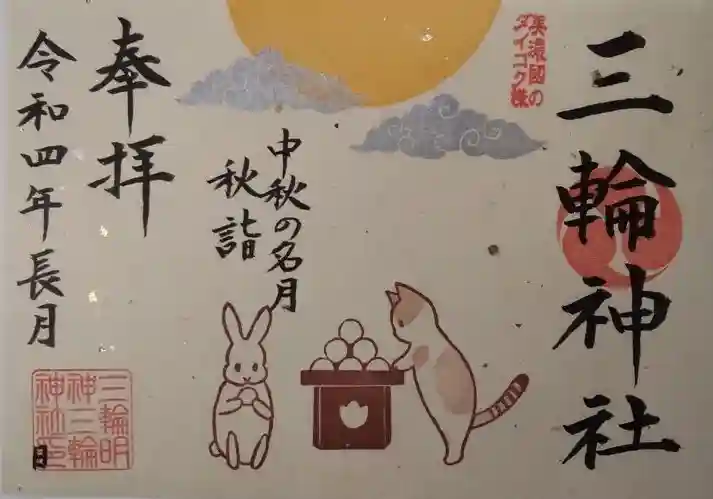 三輪神社
美濃國の
ダイコク様
中秋の名月
秋詣
奉拝
令和四年長月
日
三輪明
神三輪
神社印